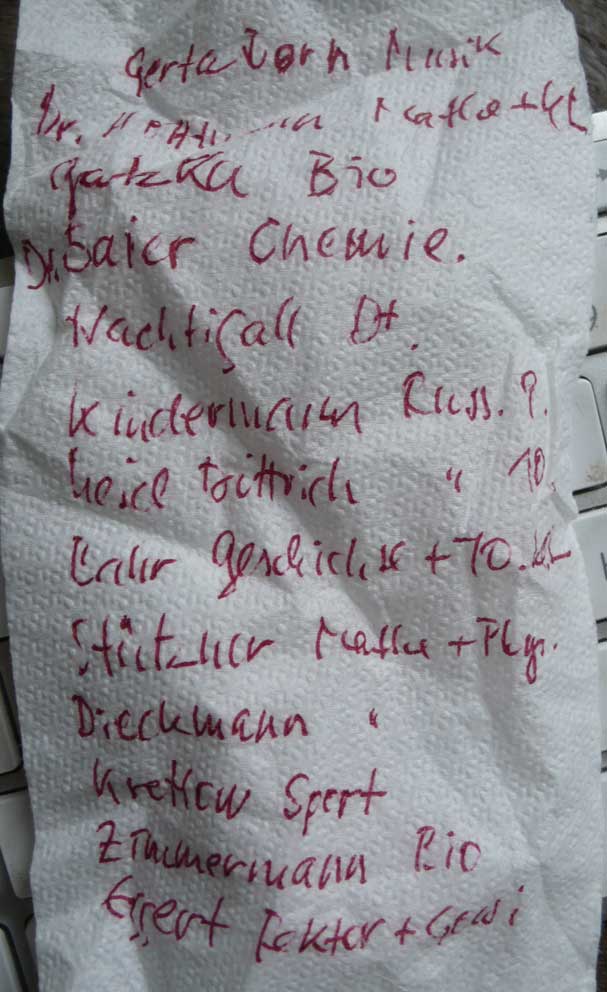 Gerta Dorn Musik
Dr. Mathe + Kl
Gatzka Bio
Dr. Baier Chemie.
Nachtigall Dt.
Kindermann Russ. 9.
Dittrich " 10.
Bahr Geschichte + 10. Kl
Stützner Mathe + Phy.
Dieckmann "
Krettow Sport
Zimmermann Bio
Eggert Rektor + Gewi